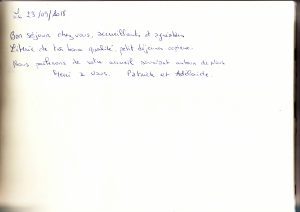 Le 23/09/2018
Bon séjour chez vous, accueillants et agréables
Literie de très bonne qualité, petit déjeuner copieux.
Nous parlerons de votre accueil
Merci à vous. Patrick et Adélaïde.